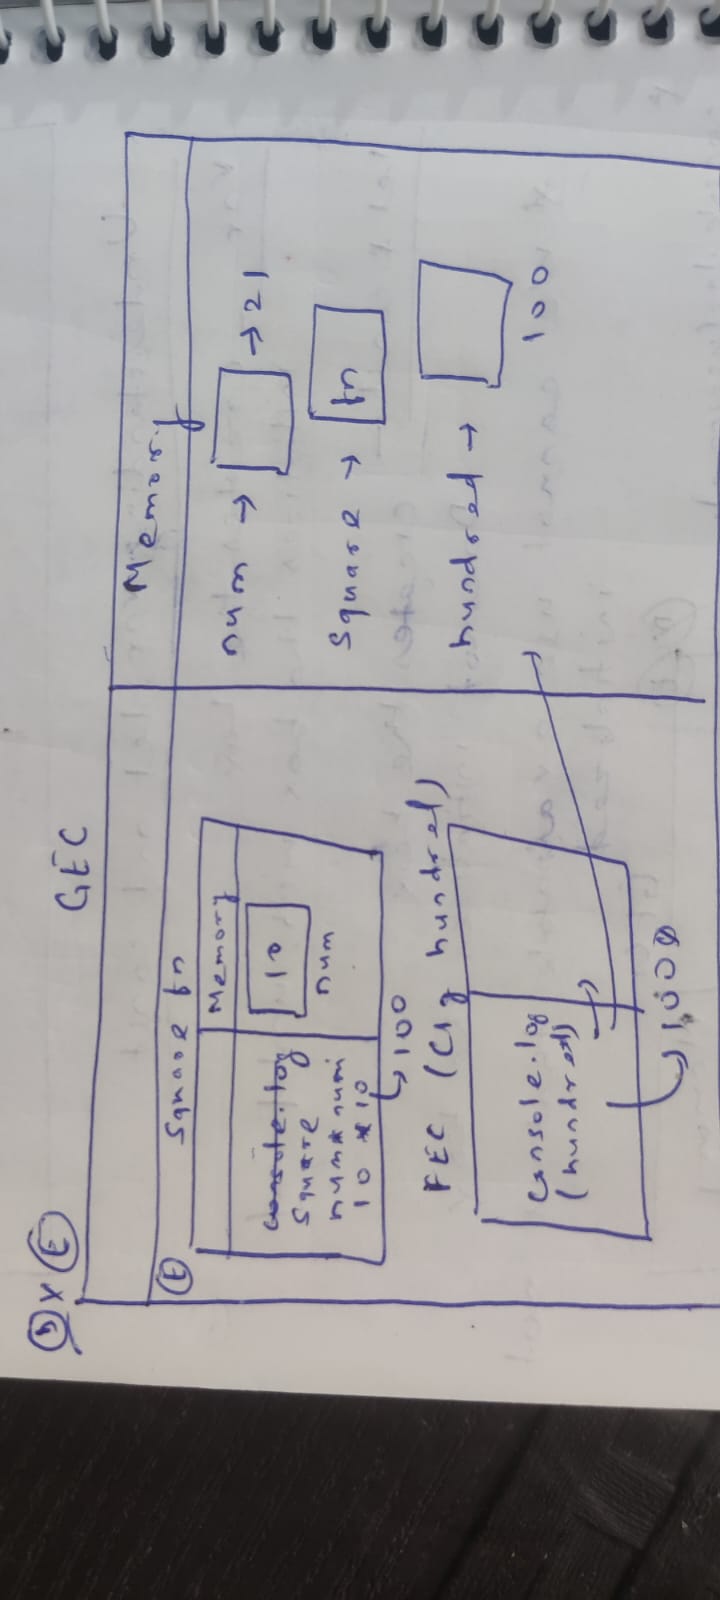 GEC
Memory
Square fn
Memory
console.log
Square
num*num
10 * 10
10
num
→ 100
FEC (Clg hundred)
Console.log
(hundred)
→ 1000
num → → 21
Square → fn
hundred →
100